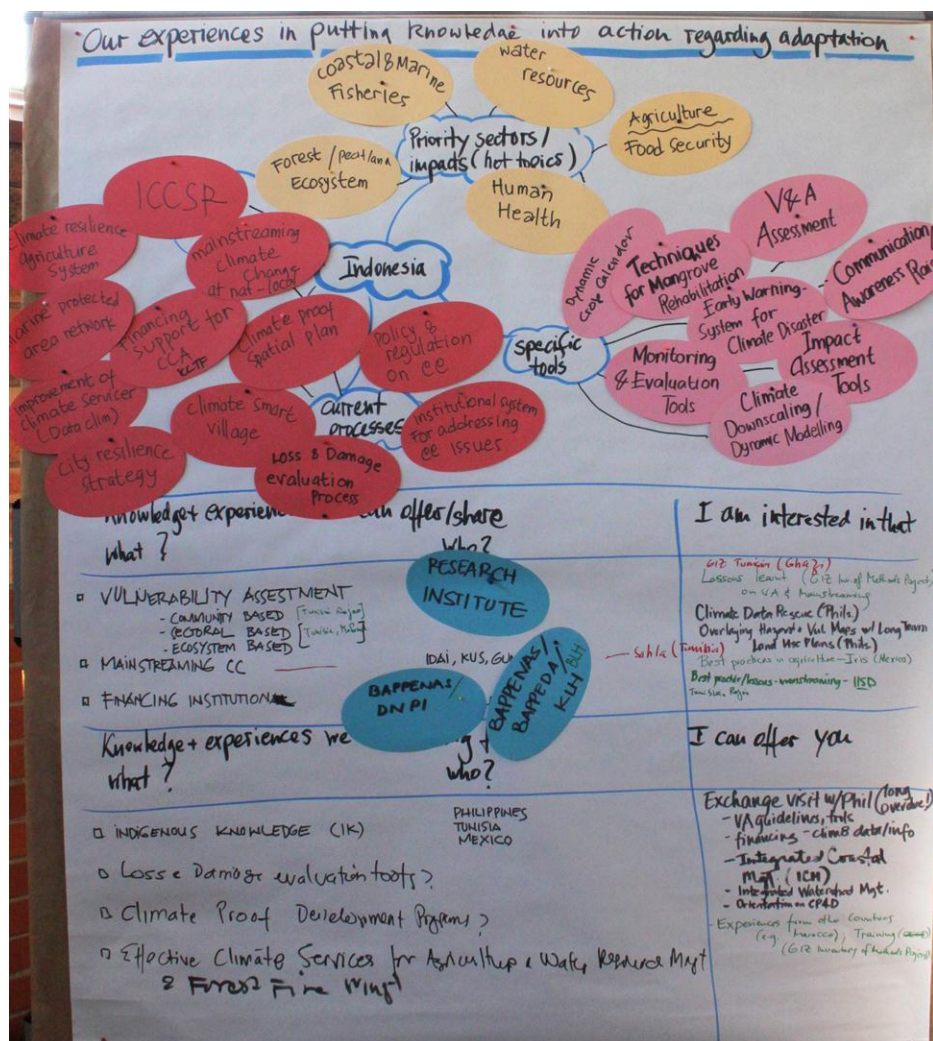 Our experiences in putting knowledge into action regarding adaptation
Coastal & Marine
Fisheries
Water
resources
Agriculture
Food security
Forest / peatland
Ecosystem
Priority sectors /
impacts (hot topics)
Human
Health
Indonesia
ICCSR
Climate resilience
agriculture
System
mainstreaming
Climate
Change
at nat-local
marine protected
area network
Financing
support for
CCA
Climate proof
Spatial plan
policy &
regulation
on CC
Improvement of
Climate Services
(Data clim)
Climate smart
village
city resilience
strategy
current
processes
Institutional system
for addressing
CC issues
Loss & Damage
evaluation
Process
specific
tools
Dynamic
Crop Calendar
Techniques
for Mangrove
Rehabilitation
V&A
Assessment
Communication
Awareness
Early Warning-
System for
Climate Disaster
Monitoring
& Evaluation
Tools
Impact
Assessment
Tools
Climate
Downscaling /
Dynamic Modelling
Knowledge + experience can offer/share
what?
who?
RESEARCH
INSTITUTE
▫ VULNERABILITY ASSESTMENT
- COMMUNITY BASED
- SECTORAL BASED
- ECOSYSTEM BASED
▫ MAINSTREAMING CC
▫ FINANCING INSTITUTION
IDAI, KUS,
BAPPENAS/
DNPI
BAPPENAS/
BAPPEDA/
KLH
BLH
I am interested in that
GIZ Tunisia
Lessons learnt
on VA & mainstreaming
Climate Data Rescue (Phils)
Overlaying Hazard & Vul. Maps w/ Long Term
Land Use Plans (Phils)
Best practices in agriculture - Iris (Mexico)
- IISD
Knowledge + experiences we
what?
who?
▫ INDIGENOUS KNOWLEDGE (IK)
PHILIPPINES
TUNISIA
MEXICO
▫ Loss & Damage evaluation tools?
▫ Climate Proof Development Programs?
▫ Effective Climate Services for Agriculture & Water Resource Mngt
& Forest Fire Mngt
I can offer you
Exchange visit w/ Phil (long
overdue!)
- VA guidelines, tools
- financing - clim8 data/info
- Integrated Coastal
Mgt. (ICM)
- Integrated Watershed Mgt.
- Orientation on CP4D
- Experiences from other countries
(e.g. Morocco), Training
(GIZ Inventory of Methods Project)